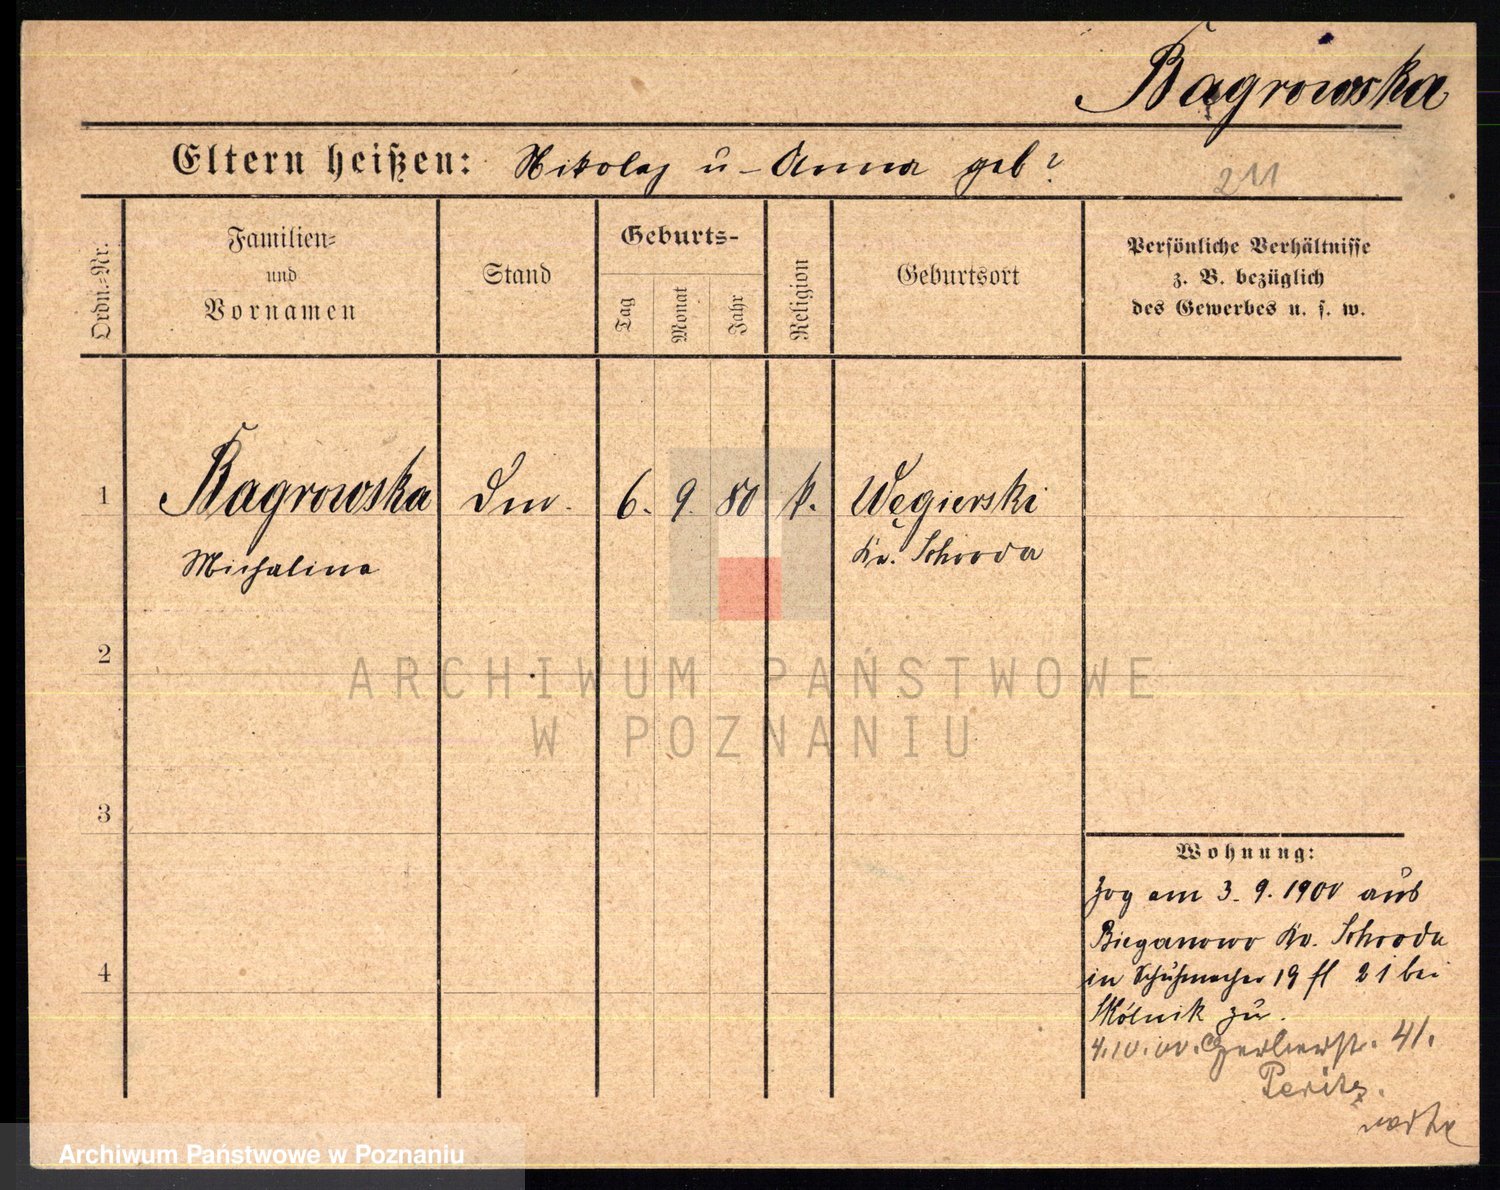 Bagrowska
Eltern heißen: Nikolaj u Anna geb?
211
Ordn.-Nr.
Familien-
und
Vornamen
Stand
Geburts-
Tag
Monat
Jahr
Religion
Geburtsort
Persönliche Verhältnisse
z. B. bezüglich
des Gewerbes u. s. w.
1 Bagrowska 6. 9. 80 k. Węgierski
Michalina Kr. Schroda
2
ARCHIWUM PAŃSTWOWE
W POZNANIU
3
4
Wohnung:
Zog am 3. 9. 1900 aus
Bieganowo Kr. Schroda
in Schuhmacher 19 fl 21 bei
Skólnik zu.
4.10.00. Gerberstr. 41.
Peritz.
Archiwum Państwowe w Poznaniu